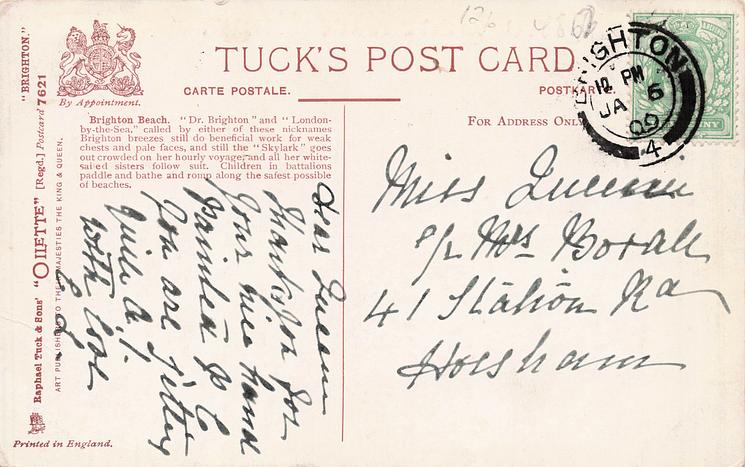 126 4860
"BRIGHTON."
[Regd.] Postcard 7621
Raphael Tuck & Sons' "OILETTE"
ART PUBLISHERS TO THEIR MAJESTIES THE KING & QUEEN.
By Appointment.
TUCK'S POST CARD
CARTE POSTALE.
POSTKAR
Brighton Beach. "Dr. Brighton" and "London-
by-the-Sea," called by either of these nicknames
Brighton breezes still do beneficial work for weak
chests and pale faces, and still the "Skylark" goes
out crowded on her hourly voyage, and all her white-
sailed sisters follow suit. Children in battalions
paddle and bathe and romp along the safest possible
of beaches.
Dear Queenie
Thanks for
your nice hand
painted P C
You are getting
quite a I.
with love
For Address Only
BRIGHTON
12 PM
JA 6
09
4
Miss Queenie
c/o Mrs Borall
41 Station Rd
Horsham
Printed in England.